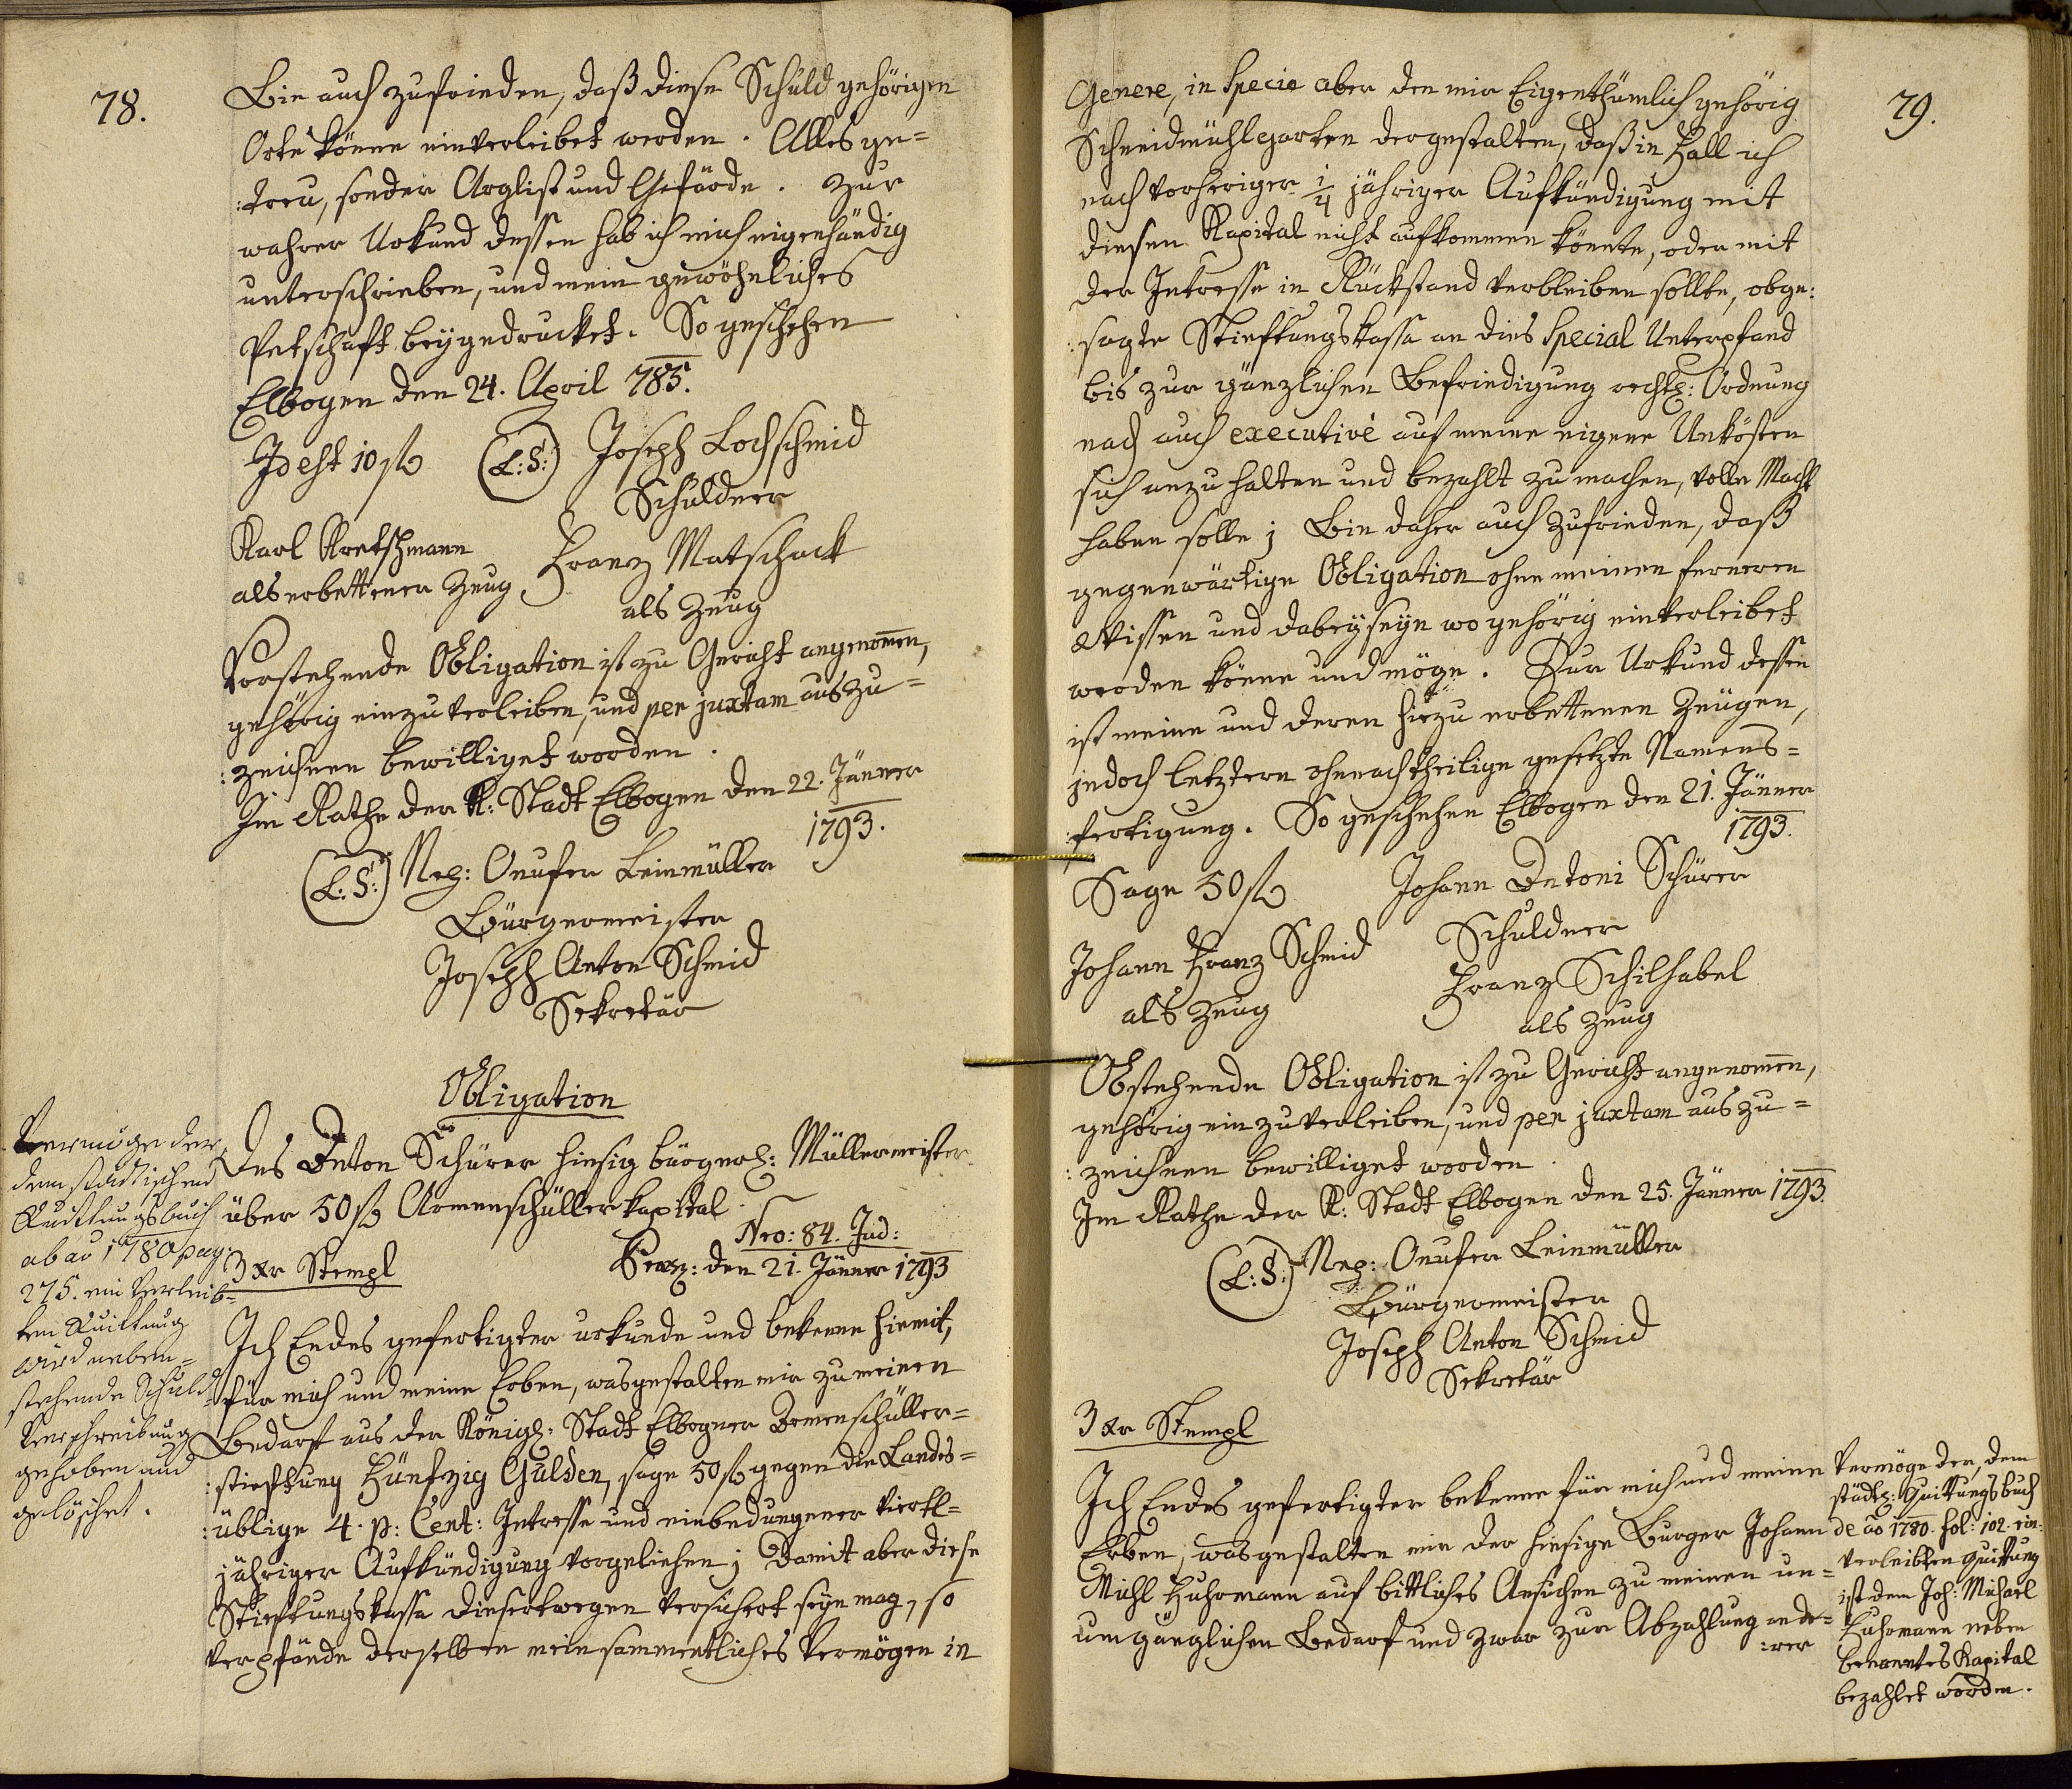 78.
Bin auch zufrieden, daß diese Schuld gehörigen
Orts könne einverleibet werden. Alles ge=
:treu, sonder Arglist und Gefärde. Zur
wahrer Urkund dessen hab ich mich eigenhändig
unterschrieben, und mein gewöhnliches
Petschaft beygedrucket. So geschehen
Elbogen den 24. April 785.
Id est 10 f (L:S:) Joseph Lochschmid
Schuldner
Karl Kretschmann Franz Matschack
als erbettener Zeug
als Zeug
Vorstehende Obligation ist zu Gericht angenom̅en,
gehörig einzuverleiben, und per juxtam auszu=
:zeichnen bewilliget worden.
Im Rathe der K: Stadt Elbogen den 22. Jänner
1793.
(L:S:) Nep: Onufer Leinmüller
Bürgermeister
Joseph Anton Schmid
Sekretär
Obligation
Des Anton Schürer hiesig bürgerl: Müllermeister
über 50 f Armenschüllerkapital.
Nro: 84. Jud:
3 xr Stempl
Praes: den 21. Jänner 1793
Ich Endes gefertigter urkunde und bekenne hiemit,
für mich und meine Erben, wasgestalten mir zu meinen
Bedarf aus der Königl: Stadt Elbogner Armenschüller=
:stieftung Fünfzig Gulden, sage 50 f gegen die Landes=
:üblige 4. p: Cent: Intresse und einbedungener viertl=
jähriger Aufkündigung vorgeliehen; Damit aber diese
Stieftungskassa diesertwegen versichert seyn mag, so
verpfände derselben mein sammentliches Vermögen in
Vermöge der
dem städtischen
Quittungsbuch
ab ao 1780 pag:
275. ein verleib=
ten Quittung
wird neben=
stehende Schuld=
Verschreibung
gehoben und
gelöschet.
79.
Genere, in Specie aber den mir Eigenthümlich gehörig
Schneidmühlgarten dergestalten, daß in Fall ich
nach vorheriger 1/4 jähriger Aufkündigung mit
diesen Kapital nicht aufkommen könnte, oder mit
der Intresse in Rückstand verbleiben sollte, obge:
:sagte Stieftungskassa an dies Special Unterpfand
bis zur gänzlichen Befriedigung rechtl: Ordnung
nach auch executivè auf meine eigene Unkösten
sich anzuhalten und bezahlt zu machen, volle Macht
haben solle; Bin daher auch zufrieden, daß
gegenwärtige Obligation ohne meinen ferneren
Wissen und dabeyseyn wo gehörig einverleibet
werden könne und möge. Zur Urkund dessen
ist meine und deren hiezu erbettenen Zeügen,
jedoch letztern ohnachtheilige gesetzte Namens=
:fertigung. So geschehen Elbogen den 21. Jänner
1793.
Sage 50 f Johann Antoni Schürer
Schuldner
Johann Franz Schmid
als Zeug
Franz Schilhabel
als Zeug
Obstehende Obligation ist zu Gericht angenom̅en,
gehörig einzuverleiben, und per juxtam auszu=
:zeichnen bewilliget worden.
Im Rathe der K: Stadt Elbogen den 25. Jänner 1793.
(L:S:) Nep: Onufer Leinmüller
Bürgermeister
Joseph Anton Schmid
Sekretär
3 xr Stempl
Ich Endes gefertigter bekenne für mich und meine
Erben, wasgestalten mir der hiesige Burger Johann
Michl Fuhrmann auf bittliches Ansuchen zu meinen un=
umgänglichen Bedarf und zwar zur Abzahlung ande=
:rer
Vermöge der, dem
städtl: Quittungsbuch
de ao 1780. fol: 102. ein:
verleibten Quittung
ist dem Joh: Michael
Fuhrmann neben
benanntes Kapital
bezahlet worden.